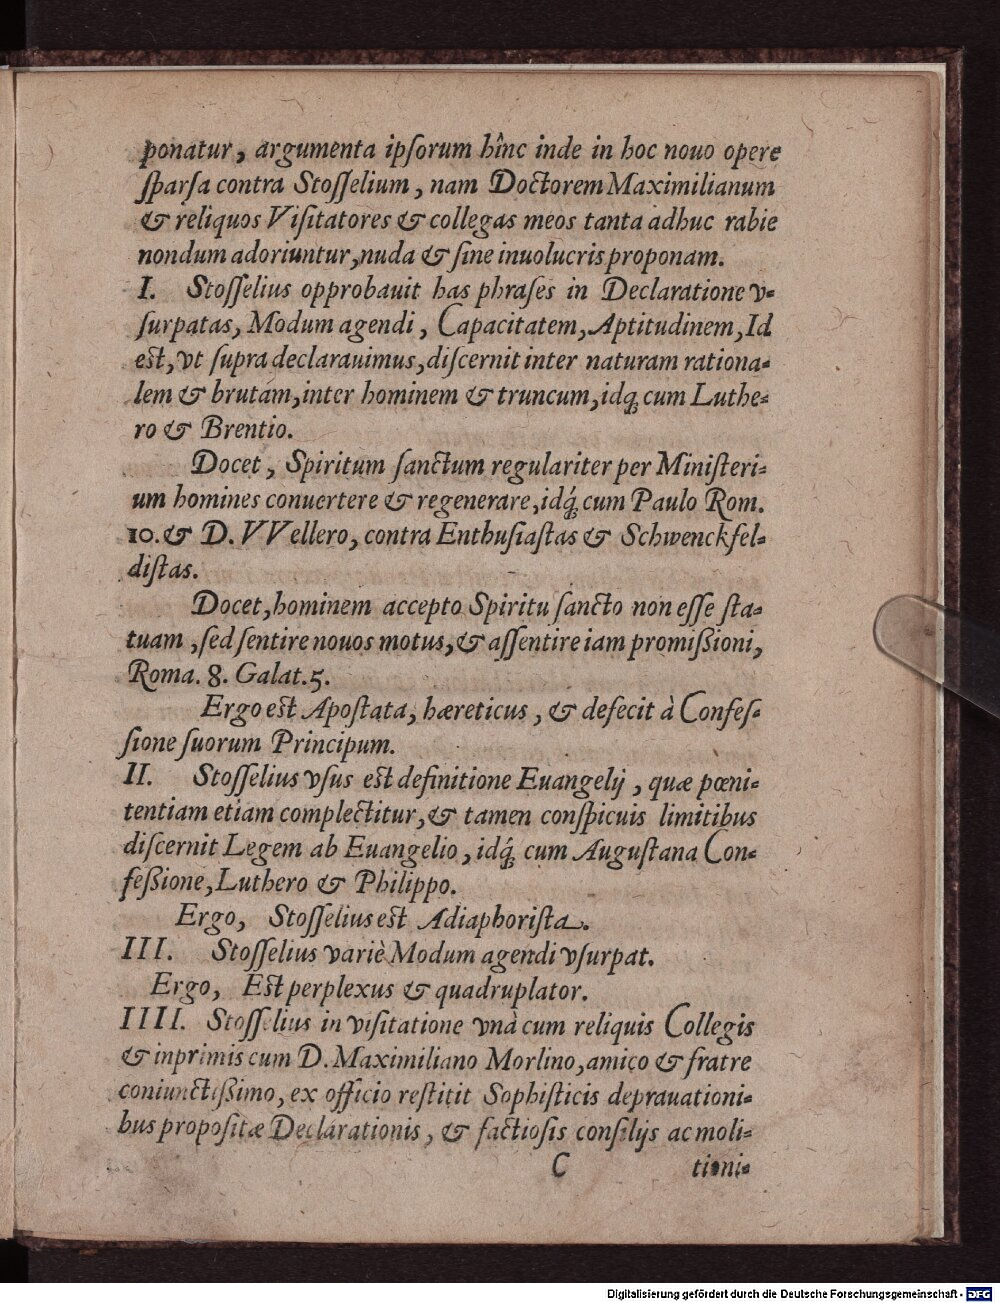 ponatur, argumenta ipſorum hînc inde in hoc nouo opere
ſparſa contra Stoſſelium, nam Doctorem Maximilianum
& reliquos Viſitatores & collegas meos tanta adhuc rabie
nondum adoriuntur, nuda & ſine inuolucris proponam.
I. Stoſſelius opprobauit has phraſes in Declaratione v=
ſurpatas, Modum agendi, Capacitatem, Aptitudinem, Id
est, vt ſupra declarauimus, diſcernit inter naturam rationa=
lem & brutam, inter hominem & truncum, idq́; cum Luthe=
ro & Brentio.
Docet, Spiritum ſanctum regulariter per Miniſteri=
um homines conuertere & regenerare, idq́; cum Paulo Rom.
10. & D. VVellero, contra Enthuſiaſtas & Schwenckfel=
diſtas.
Docet, hominem accepto Spiritu ſancto non eſſe ſta=
tuam, ſed ſentire nouos motus, & aſſentire iam promißioni,
Roma. 8. Galat. 5.
Ergo est Apoſtata, hæreticus, & defecit à Confeſ=
ſione ſuorum Principum.
II. Stoſſelius vſus est definitione Euangelij, quæ pœni=
tentiam etiam complectitur, & tamen conſpicuis limitibus
diſcernit Legem ab Euangelio, idq́; cum Auguſtana Con=
feßione, Luthero & Philippo.
Ergo, Stoſſelius est Adiaphoriſta.
III. Stoſſelius variè Modum agendi vſurpat.
Ergo, Est perplexus & quadruplator.
IIII. Stoſſelius in viſitatione vnà cum reliquis Collegis
& inprimis cum D. Maximiliano Morlino, amico & fratre
coniunctißimo, ex officio reſtitit Sophiſticis deprauationi=
bus propoſitæ Declarationis, & factioſis conſilijs ac moli=
C tioni=
Digitalisierung gefördert durch die Deutsche Forschungsgemeinschaft - DFG